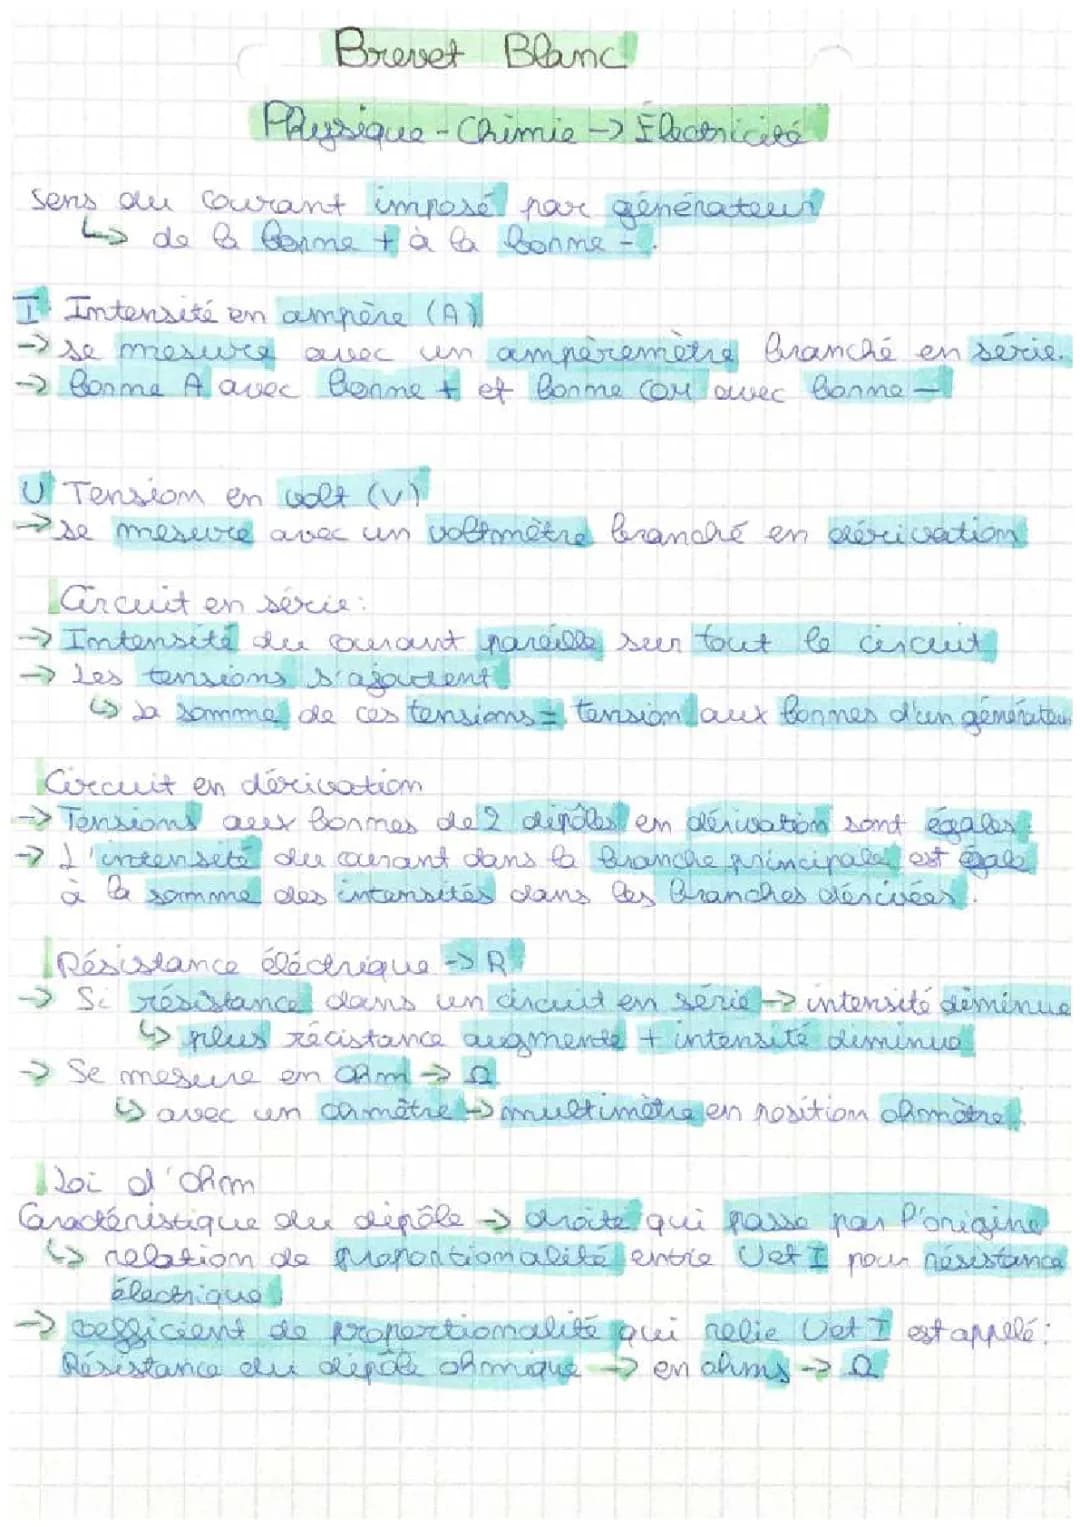 Brevet Blanc
Physique - Chimie -> Électricité
sens du courant imposé par générateur
↳ de la borne + à la borne -.
I Intensité en ampère (A)
-> se mesure avec un ampèremètre branché en série.
-> borne A avec borne + et borne com avec borne -
U Tension en volt (V)
-> se mesure avec un voltmètre branché en dérivation
Circuit en série:
-> Intensité du courant pareille sur tout le circuit
-> Les tensions s'ajoutent
↳ La somme de ces tensions = tension aux bornes d'un générateur
Circuit en dérivation
-> Tensions aux bornes de 2 dipôles en dérivation sont égales.
-> L'intensité du courant dans la branche principale est égale
à la somme des intensités dans les branches dérivées.
Résistance éléctrique -> R
-> Si résistance dans un circuit en série -> intensité diminue
↳ plus récistance augmente + intensité diminue
-> Se mesure en ohm -> Ω
↳ avec un ohmètre -> multimètre en position ohmètre.
Loi d'ohm
Caractéristique du dipôle -> droite qui passe par l'origine
↳ relation de proportionalité entre U et I pour résistance
électrique
-> coefficient de proportionalité qui relie U et I est appelé:
Résistance du dipôle ohmique -> en ohms -> Ω